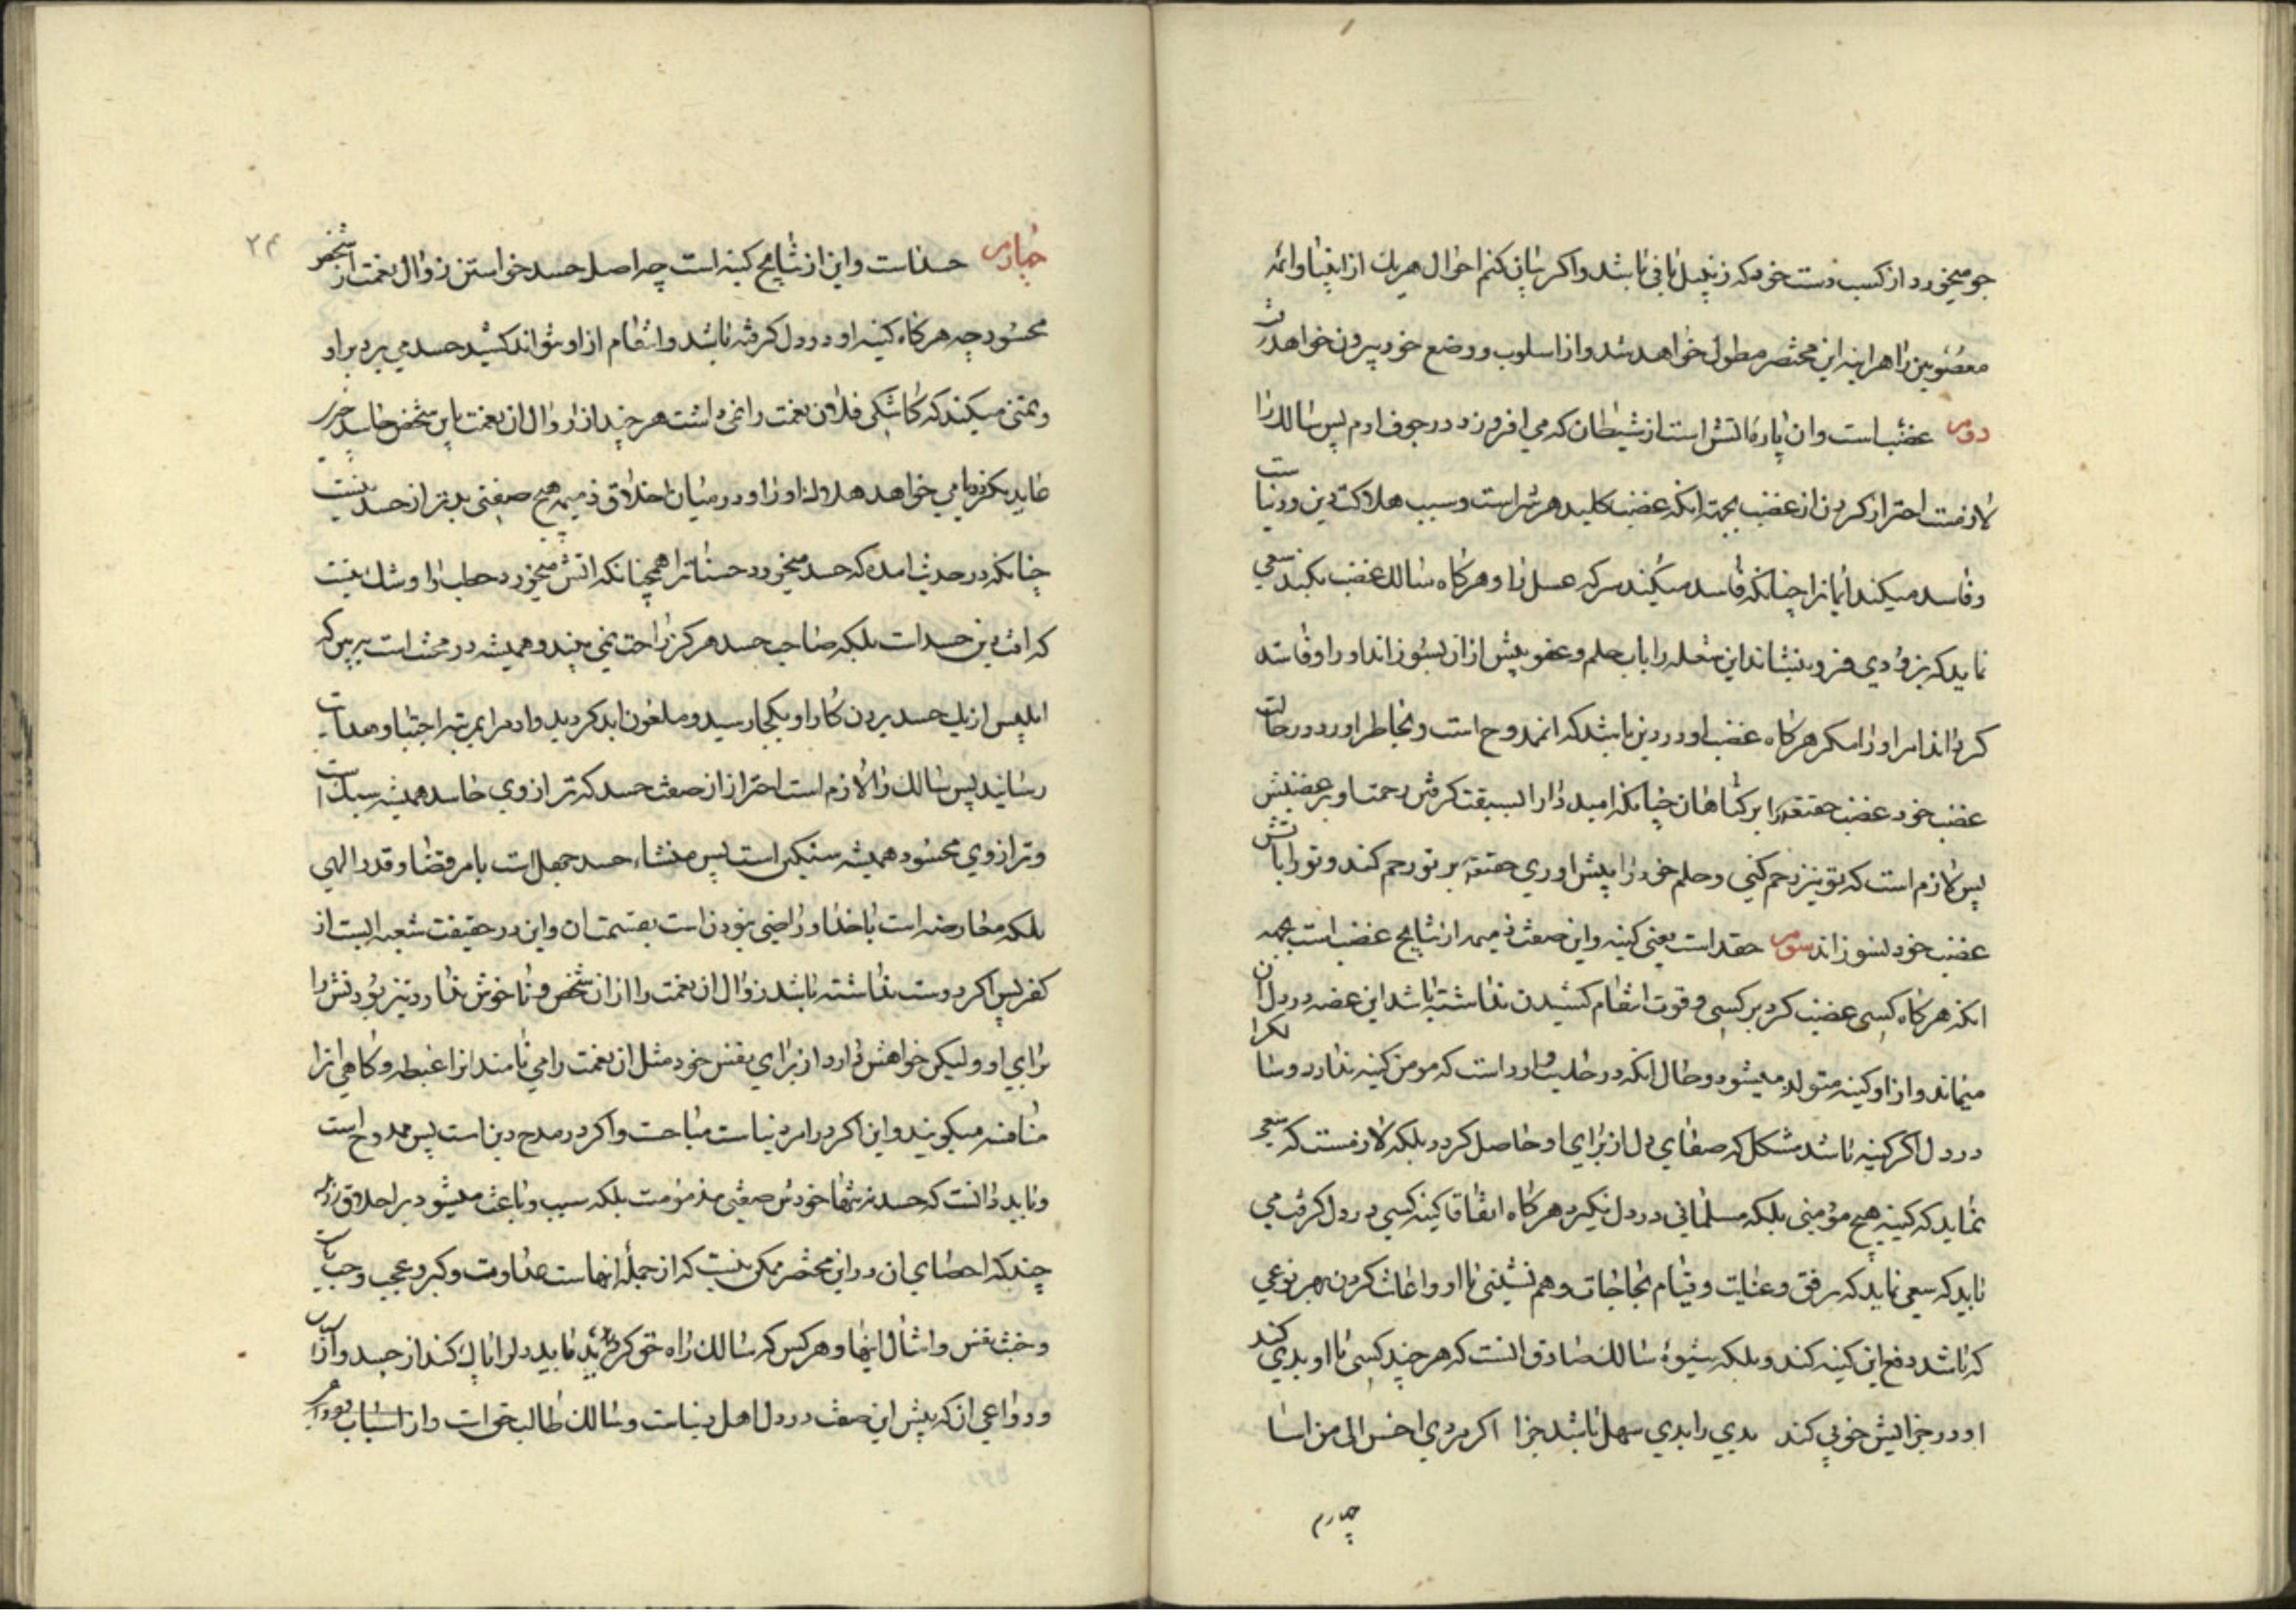 جو میخورد از کسب دست خود که زنبیل بافی باشد و اکر بیان کنم احوال هریك از انبیا و ائمه
معصومین را هراینه این مختصر مطول خواهد شد و از اسلوب و وضع خود بیرون خواهد رفت
دوم غضب است و ان پاره اتش است از شیطان که می افروزد در جوف ادم پس سالك را
لازمست احتراز کردن از غضب بجهة انکه غضب کلید هر شر است و سبب هلاکت دین و دنیاست
و فاسد میکند ایمانرا چنانکه فاسد میکند سرکه عسل را و هرکاه سالك غضب بکند سعی
نماید که بزودی فرو بنشاند این شعله را باب حلم و عفو پیش از ان بسوزاند او را و فاسد
کرداند امر او را مکر هرکاه غضب او در دین باشد که ان ممدوح است و بخاطر اورد در حالت
غضب خود غضب حقتعالی را بر کناهان چنانکه امید دارد سبقت کرفتن رحمت او بر غضبش
پس لازم است که تو نیز رحم کنی و حلم خود را پیش اوری حقتعالی بر تو رحم کند و تو را باتش
غضب خود نسوزاند سوم حقد است یعنی کینه و این صفت ذمیمه از نتایج غضب است بجهة
انکه هرکاه کسی غضب کرد بر کسی و قوت انتقام کشیدن نداشته باشد این غصه در دل ان
میماند و از او کینه متولد میشود و حال انکه در حدیث وارد است که مومن کینه ندارد و سالکرا
در دل اکر کینه باشد مشکل که صفای دل از برای او حاصل کردد بلکه لازمست که سعی
نماید که کینه هیچ مؤمنی بلکه مسلمانی در دل نکیرد هرکاه اتفاقا کینه کسی در دل کرفت می
باید که سعی نماید که برفق و عنایت و قیام بحاجات و هم نشینی با او و اعانت کردن بهر نوعی
که باشد دفع این کینه کند و بلکه شیوۀ سالك صادق انست که هر چند کسی با او بدی کند
او در جزایش خوبی کند بدی را بدی سهل باشد جزا اکر مردی احسن الی من اسا
چهارم
۲۴
چهارم حسد است و این از نتایج کینه است چه اصل حسد خواستن زوال نعمت از شخص
محسود چه هرکاه کینه او در دل کرفته باشد و انتقام از او نتواند کشید حسد می برد بر او
و تمنی میکند که کاشکی فلان نعمت را نمی داشت هر چند از زوال ان نعمت باین شخص حاسد چیزی
عاید نکردد یا می خواهد هلاك او را و در میان اخلاق ذمیمه هیچ صفتی بدتر از حسد نیست
چنانکه در حدیث امده که حسد میخورد حسنات را همچنانکه اتش میخورد حطب را و شك نیست
که افت دین حسد است بلکه صاحب حسد هرکز راحت نمی بیند و همیشه در محنت است ببین که
ابلیس از یك حسد بردن کار او بکجا رسید و ملعون ابد کردید و ادم را بمرتبه اجتبا و هدایت
رسانید پس سالك را لازم است احتراز از صفت حسد که ترازوی حاسد همیشه سبك است
و ترازوی محسود همیشه سنکین است پس منشاء حسد جهل است بامر قضا و قدر الهی
بلکه معارضه است با خدا و راضی نبودن است بقسمت ان و این در حقیقت شعبه ایست از
کفر پس اکر دوست نداشته باشد زوال ان نعمت را از ان شخص و ناخوش ندارد نیز بودنش را
برای او و لیکن خواهش دارد از برای نفس خود مثل ان نعمت را می نامند انرا غبطه و کاهی انرا
منافسه میکویند و این اکر در امر دنیاست مباحست و اکر در مدح دین است پس ممدوح است
و باید دانست که حسد نه تنها خودش صفتی مذمومست بلکه سبب و باعث میشود بر اخلاق رذیله
چند که احصای ان در این مختصر ممکن نیست که از جمله انهاست عداوت و کبر و عجب و حب ریاست
و خبث نفس و امثال اینها و هر کس که سالك راه حق کردید باید دلرا پاك کند از حسد و از اسباب
و دواعی ان که پیش این صفت در دل اهل دنیاست و سالك طالب حق است و از اسباب